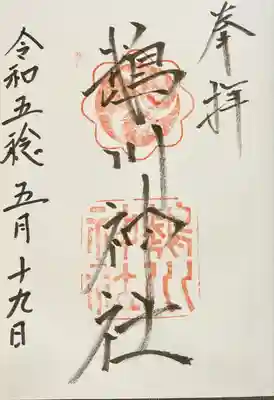 奉拝
川神社
令和五稔五月十九日